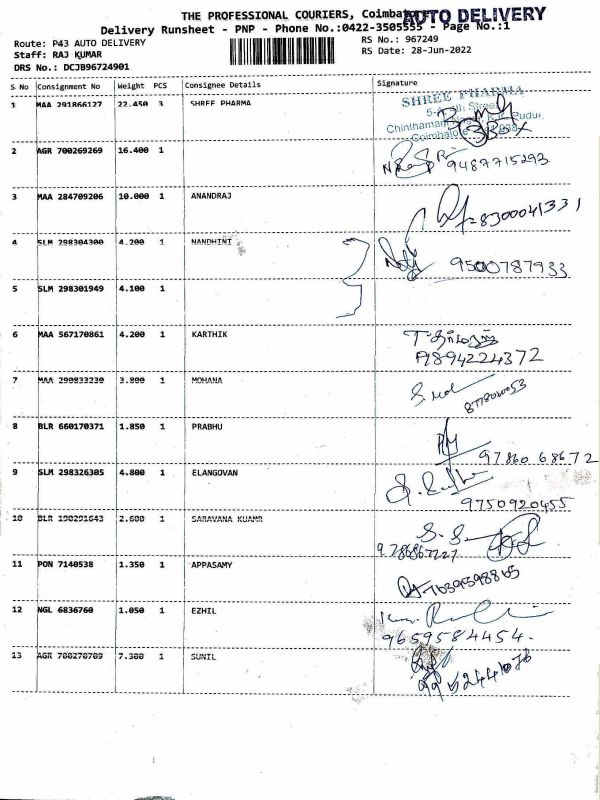 THE PROFESSIONAL COURIERS, Coimbatore
AUTO DELIVERY
Delivery Runsheet - PNP - Phone No.:0422-3505555 - Page No.:1
Route: P43 AUTO DELIVERY RS No.: 967249
Staff: RAJ KUMAR RS Date: 28-Jun-2022
DRS No.: DCJB96724901
S No Consignment No Weight PCS Consignee Details Signature
1 MAA 291866127 22.450 3 SHREE PHARMA
SHREE PHARMA
2 AGR 700269269 16.400 1 9487715293
3 MAA 284709206 10.000 1 ANANDRAJ 8300041331
4 SLM 298304300 4.200 1 NANDHINI 9500787933
5 SLM 298301949 4.100 1
6 MAA 567170861 4.200 1 KARTHIK
9894224372
7 MAA 290833230 3.800 1 MOHANA
8 BLR 660170371 1.850 1 PRABHU
97860 68672
9 SLM 298326305 4.800 1 ELANGOVAN
9750920455
10 BLR 190291643 2.600 1 SARAVANA KUAMR
11 PON 7140538 1.350 1 APPASAMY
12 NGL 6836760 1.050 1 EZHIL
9659584454.
13 AGR 700270709 7.300 1 SUNIL